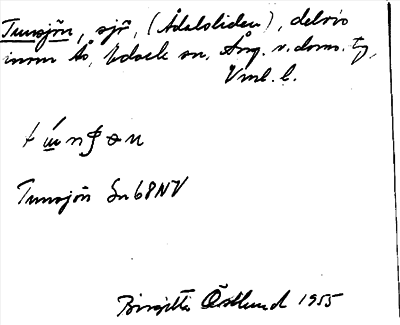 Tunsjön, sjö, (Ådalsliden), delvis
inom Ås, Edsele sn. Ång. v. doms. tg,
Vnl. l.
Tunsjön Sn68NV
Birgitta Östlund 1955